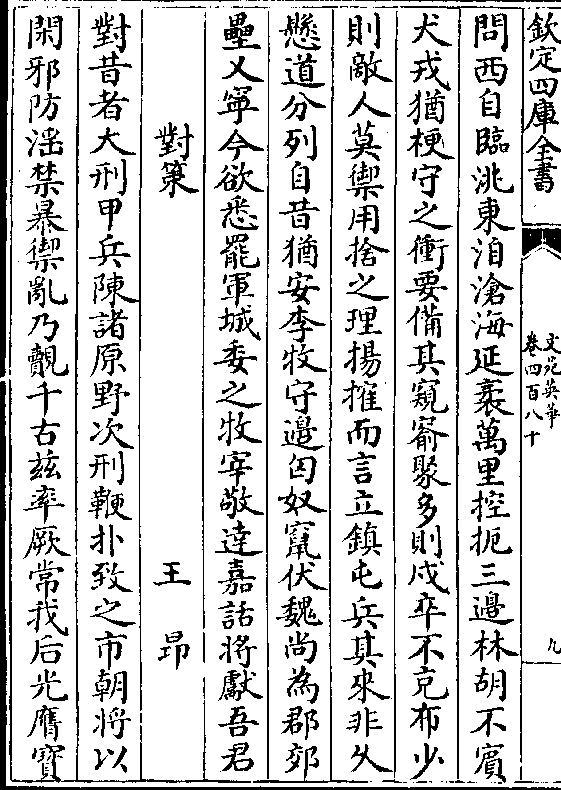 欽定四庫全書
文苑英華
卷四百八十
九
問西自臨洮東洎滄海延袤萬里控扼三邊林胡不賓
犬戎猶梗守之衝要備其窺窬聚多則戍卒不克布少
則敵人莫禦用捨之理揚搉而言立鎮屯兵其來非久
懸道分列自昔猶安李牧守邊匈奴竄伏魏尚為郡郊
壘乂寧今欲悉罷軍城委之牧宰敬達嘉話將獻吾君
對策 王昂
對昔者大刑甲兵陳諸原野次刑鞭扑致之市朝將以
閑邪防淫禁暴禦亂乃觀千古兹率厥常我后光膺寶